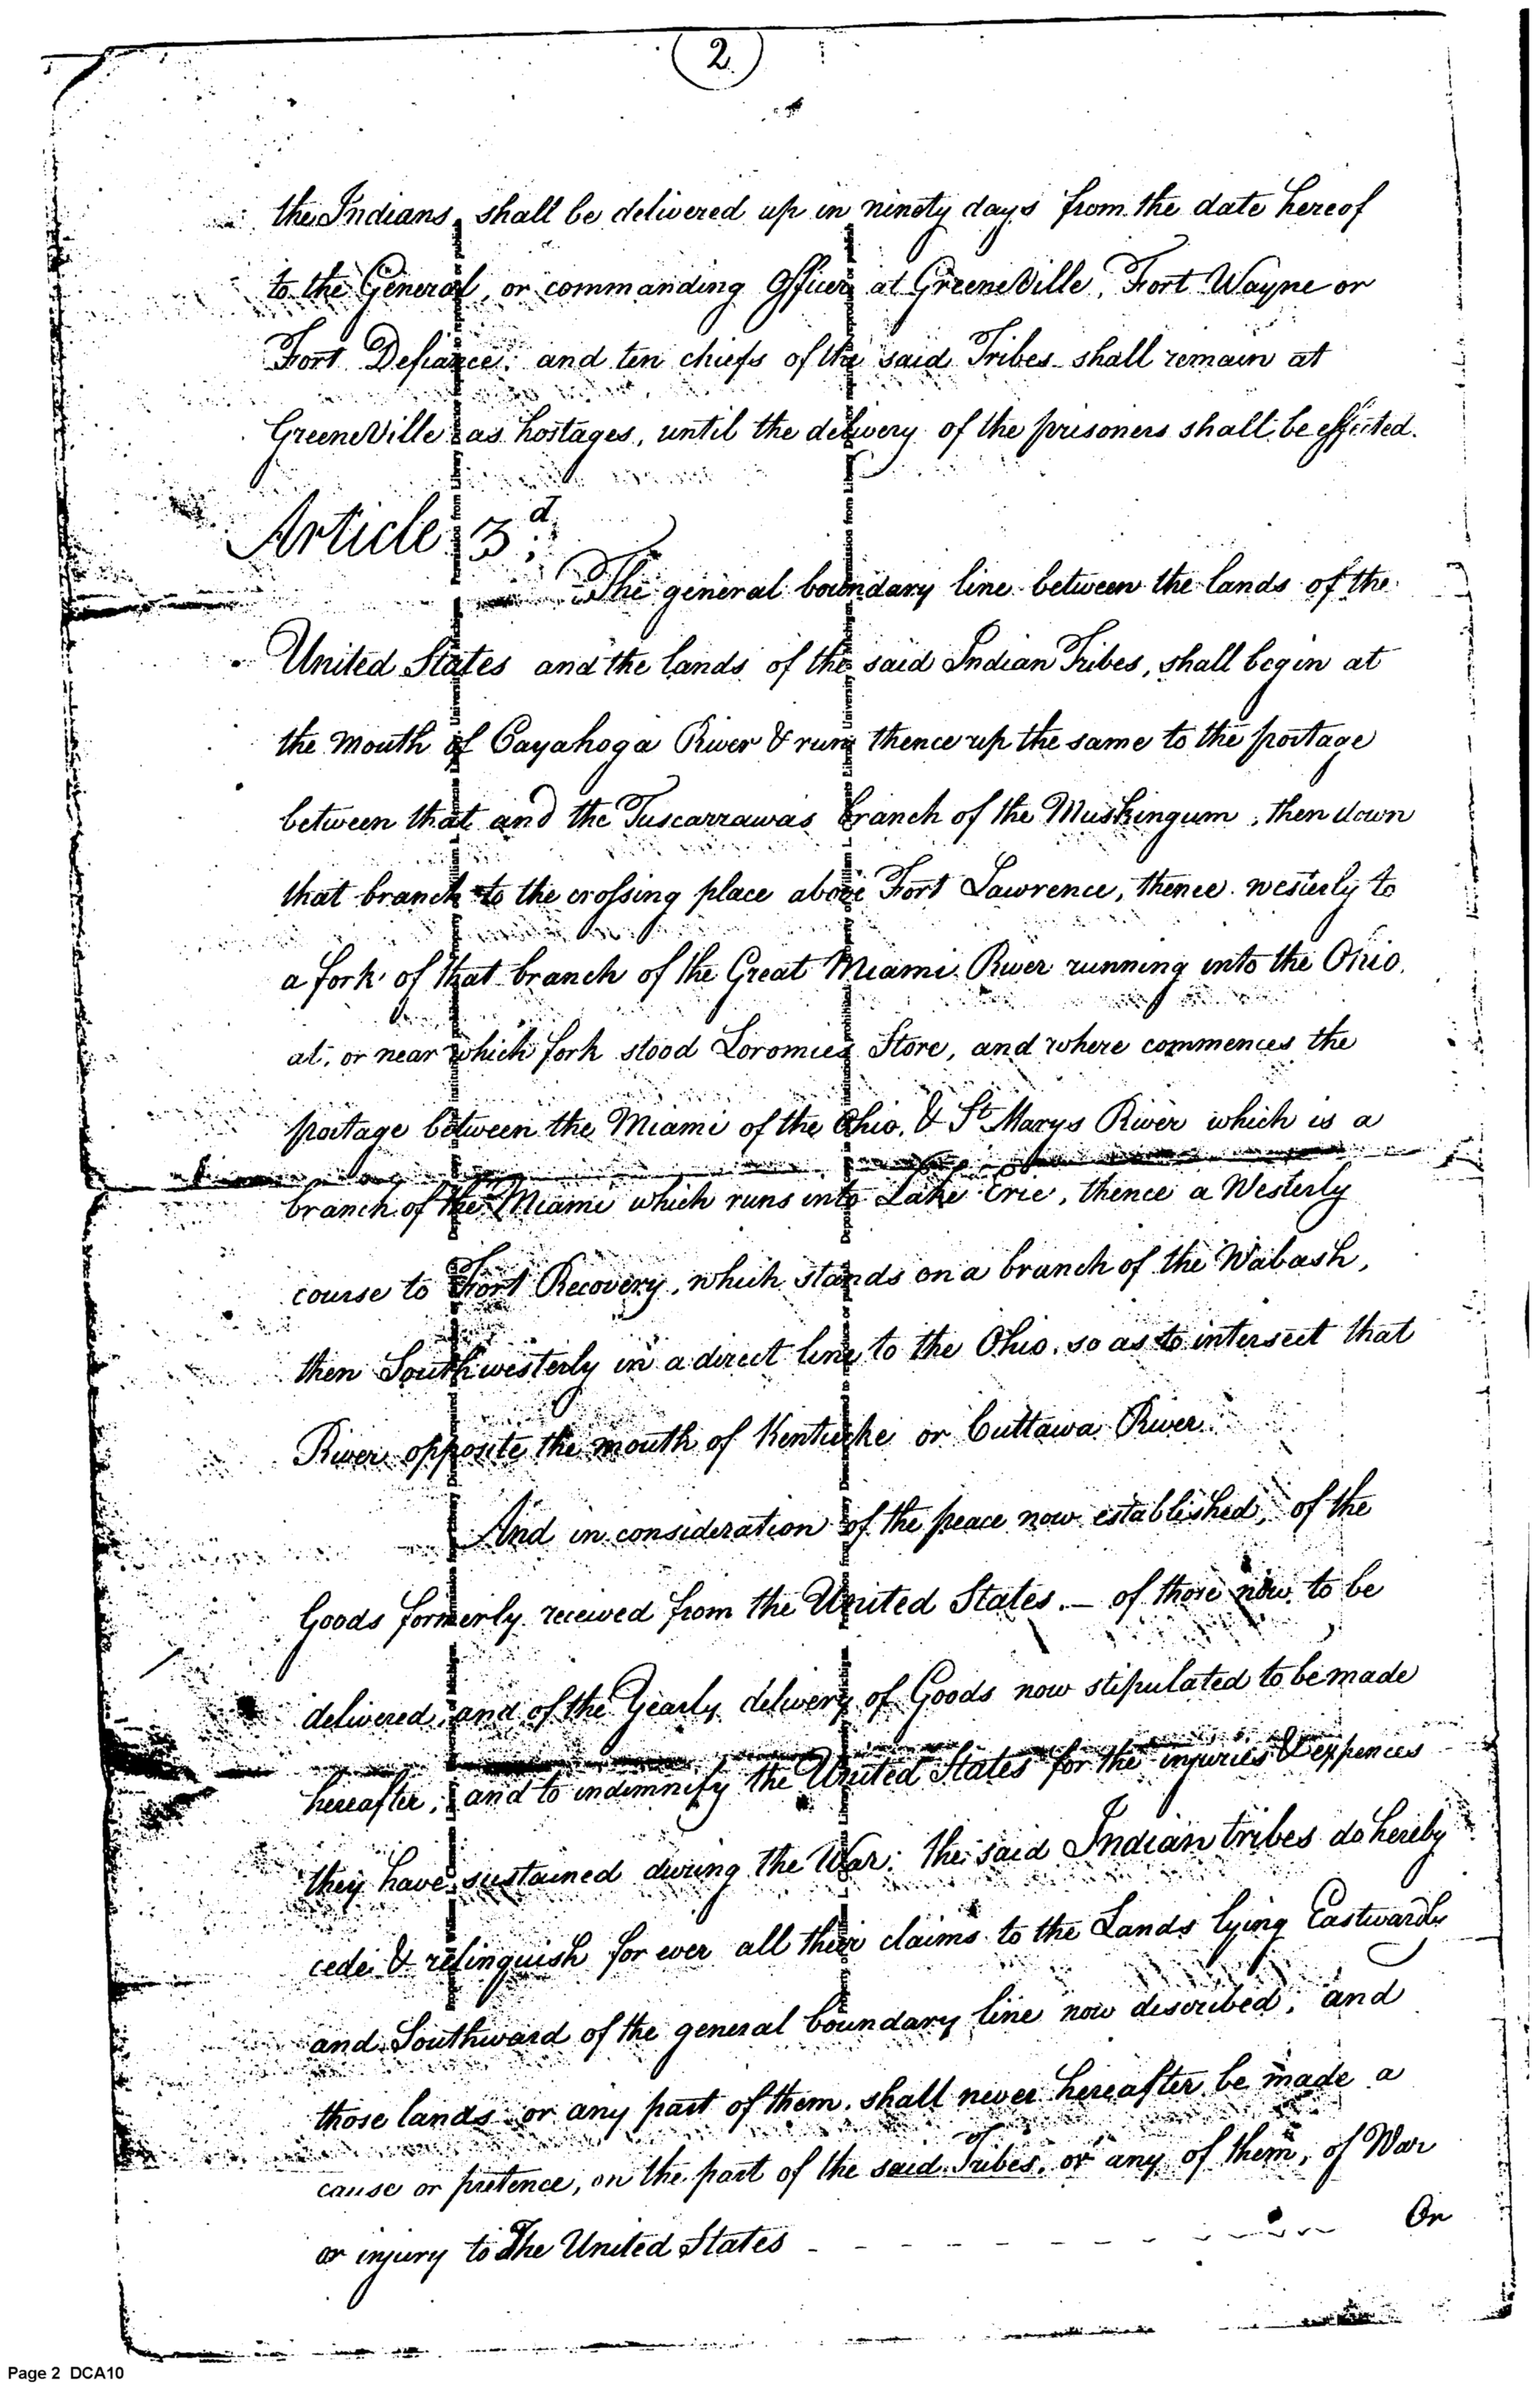 2
the Indians shall be delivered up in ninety days from the date hereof
to the General, or commanding Officer at GreeneVille, Fort Wayne or
Fort Defiance: and ten chiefs of the said Tribes shall remain at
GreeneVille as hostages, until the delivery of the prisoners shall be effected.
Article 3d;
The general boundary line between the lands of the
United States and the lands of the said Indian Tribes, shall begin at
the mouth of Cayahoga River & run thence up the same to the portage
between that and the Tuscarrawas branch of the Muskingum, then down
that branch to the crossing place above Fort Lawrence, thence westerly to
a fork of that branch of the Great Miami River running into the Ohio,
at, or near which fork stood Loromies Store, and where commences the
portage between the Miami of the Ohio, & St Marys River which is a
branch of the Miami which runs into Lake Erie, thence a Westerly
course to Fort Recovery, which stands on a branch of the Wabash,
then Southwesterly in a direct line to the Ohio, so as to intersect that
River opposite the mouth of Kentucke or Cuttawa River.
And in consideration of the peace now established, of the
Goods formerly received from the United States. — of those now to be
delivered, and of the Yearly delivery of Goods now stipulated to be made
hereafter, and to indemnify the United States for the injuries & expences
they have sustained during the War: the said Indian tribes do hereby
cede & relinquish for ever all their claims to the Lands lying Eastwardly
and Southward of the general boundary line now described; and
those lands or any part of them, shall never hereafter be made a
cause or pretence, on the part of the said Tribes, or any of them, of War
or injury to The United States - - - - - - - - - - - Or
Page 2 DCA10